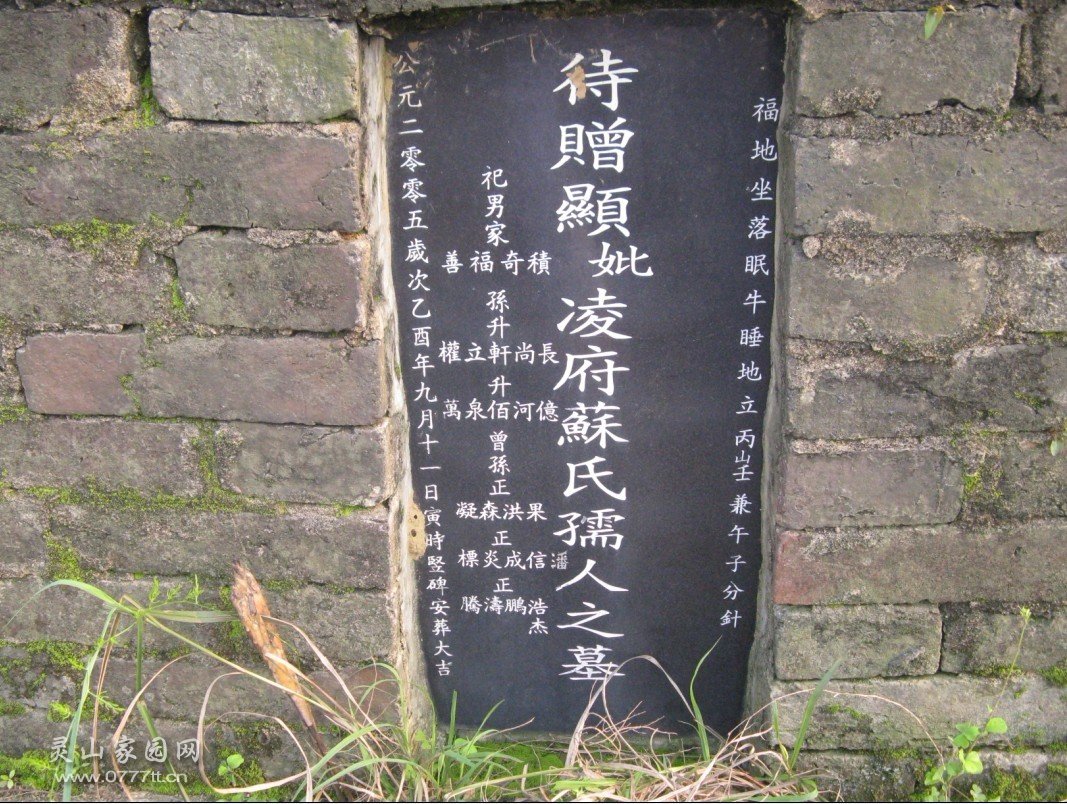 福地坐落眠牛睡地立丙山壬兼午子分針
待贈顯妣凌府蘇氏孺人之墓
祀男家
積奇福善
孫升
長尚軒立權
升
億河佰泉萬
曾孫正
果洪森凝
正
潘信成炎標
正
浩鵬濤騰
杰
公元二零零五歲次乙酉年九月十一日寅時竪碑安葬大吉
灵山家园网
www.0777tt.cn